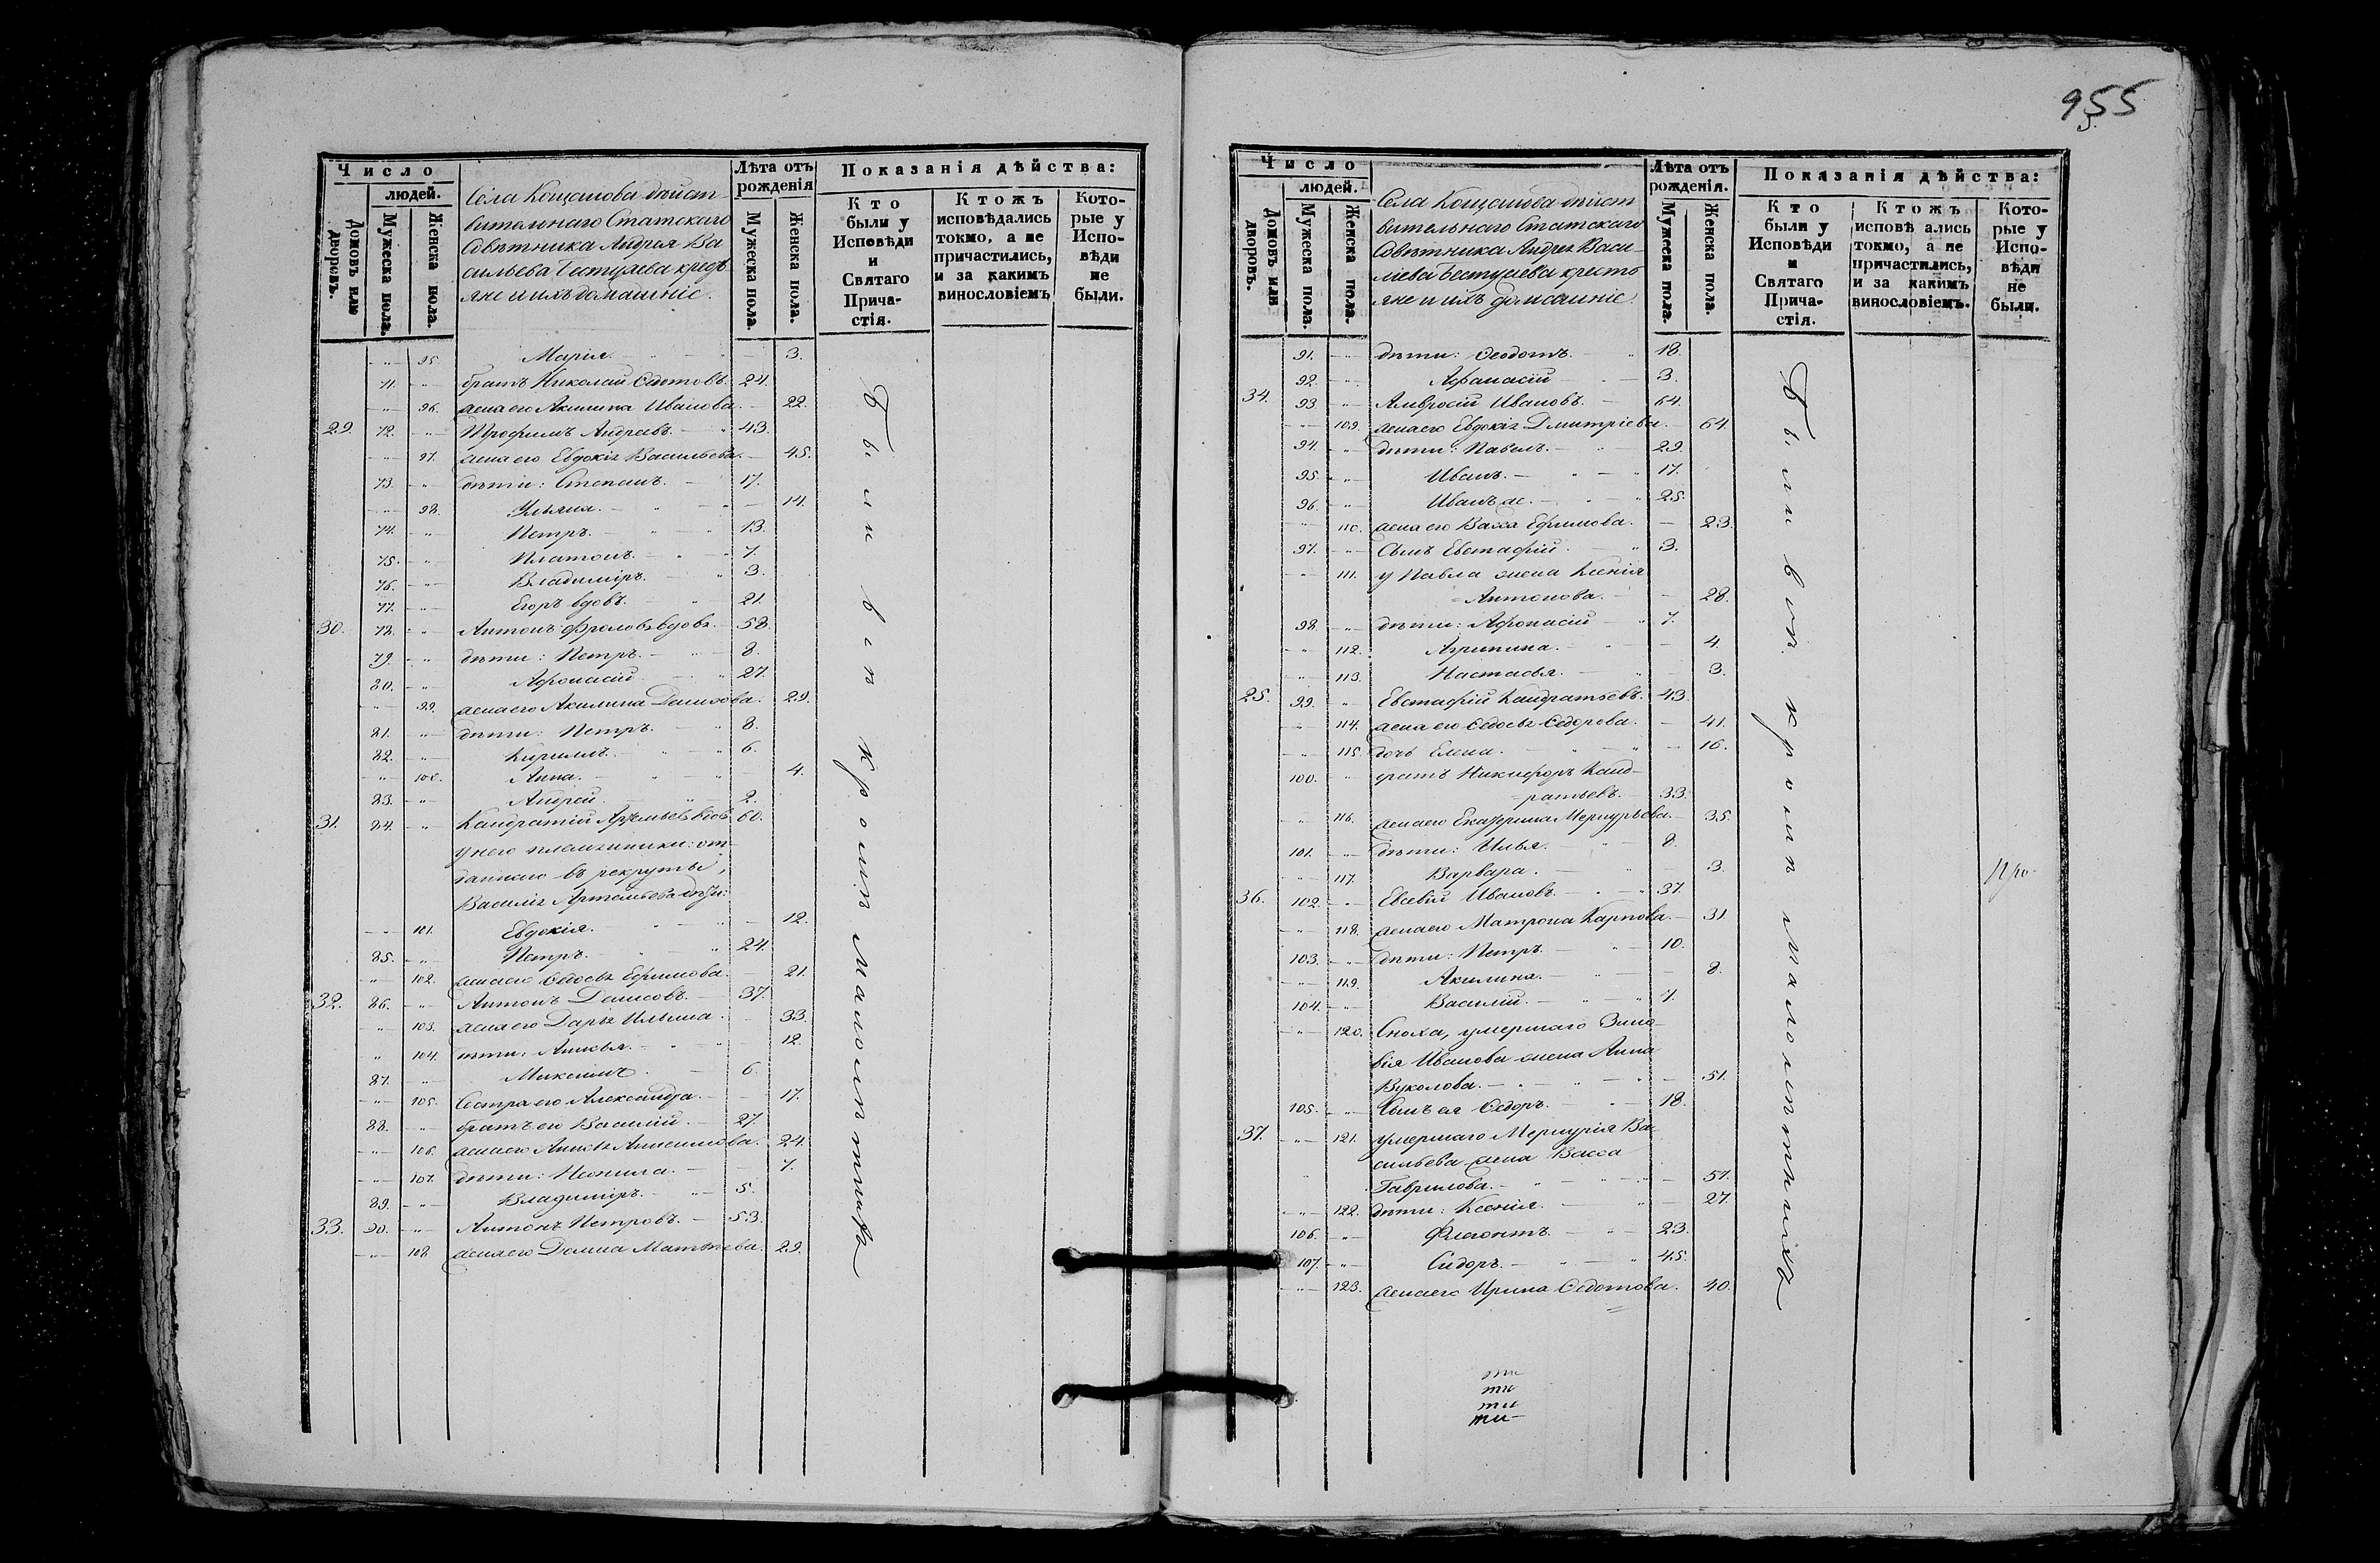 955
Число
людей.
Домовъ или дворовъ.
Мужеска пола.
Женска пола.
Села Кощашова дѣйст-
вительнаго Статскаго
Совѣтника Андрея Ва
сильева Бестужева кресть
яне и ихъ домашніе.
Лѣта отъ
рожденія
Мужеска пола.
Женска пола.
Показанія дѣйства:
Кто
были у
Исповѣди
и
Святаго
Прича-
стія.
Ктожъ
исповѣдались
токмо, а не
причастились,
и за какимъ
винословіемъ
Кото-
рые у
Испо-
вѣди
не
были.
95. Марія. 3.
71. братъ Николай Ѳедотовъ. 24.
96. жена его Акилина Иванова. 22.
29. 72. Трофимъ Андреевъ. 43.
97. жена его Евдокія Васильева. 45.
73. дѣти: Степанъ. 17.
98. Ульяна. 14.
74. Петръ. 13.
75. Платонъ. 7.
76. Владиміръ. 3.
77. Егоръ вдовъ. 21.
30. 78. Антонъ Фроловъ вдовъ. 58.
79. дѣти: Петръ. 8.
80. Афонасій 27.
99. жена его Акилина Денисова. 29.
81. дѣти: Петръ. 8.
82. Кирилъ. 6.
100. Анна. 4.
83. Андрей. 2.
31. 84. Кандратій Артемьевъ вдов. 60.
у него племянники: от-
даннаго въ рекруты,
Василія Артемьева дѣти:
101. Евдокія. 12.
85. Петръ. 24.
102. жена его Ѳедосья Ефимова. 21.
32. 86. Антонъ Денисовъ. 37.
103. жена его Дарья Ильина. 33.
104. дѣти: Анисья. 12.
87. Максимъ. 6.
105. Сестра его Александра. 17.
88. братъ его Василій. 27.
106. жена его Анисья Анисимова. 24.
107. дѣти: Неонила. 7.
89. Владиміръ. 5.
33. 90. Антонъ Петровъ. 53.
108. жена его Домна Матвѣева. 29.
Были всѣ кромѣ малолѣтнихъ
Число
людей.
Домовъ или дворовъ.
Мужеска пола.
Женска пола.
Села Кощашова дѣйст
вительнаго Статскаго
Совѣтника Андрея Васи-
льева Бестужева кресть
яне и ихъ домашніе.
Лѣта отъ
рожденія.
Мужеска пола.
Женска пола.
Показанія дѣйства:
Кто
были у
Исповѣди
и
Святаго
Прича-
стія.
Ктожъ
исповѣ ались
токмо, а не
причастились,
и за какимъ
винословіемъ.
Кото-
рые у
Испо-
вѣди
не
были.
91. дѣти: Ѳеодотъ. 18.
92. Афанасій 3.
34. 93. Амвросій Ивановъ. 64.
109. жена его Евдокія Дмитріева. 64.
94. дѣти: Павелъ. 29.
95. Иванъ. 17.
96. Иванъ же. 25.
110. жена его Васса Ефимова. 23.
97. Сынъ Евстафій. 3.
111. у Павла жена Ксенія
Антонова. 28.
98. дѣти: Афонасій 7.
112. Агрипина. 4.
113. Настасья. 3.
25. 99. Евстафій Кандратьевъ. 43.
114. жена его Ѳедосья Ѳедорова. 41.
115. дочь Елена. 16.
100. братъ Никифоръ Канд-
ратьевъ. 33.
116. жена его Екатерина Меркурьева. 35.
101. дѣти: Илья. 8.
117. Варвара. 3.
36. 102. Евсевій Ивановъ. 37.
118. жена его Матрона Карпова. 31.
103. дѣти: Петръ. 10.
119. Акилина. 8.
104. Василій. 7.
120. Сноха, умершаго Зино-
вія Иванова жена Анна
Вуколова. 51.
105. Сынъ ея Ѳедоръ. 18.
37. 121. умершаго Меркурія Ва-
сильева жена Васса
Гаврилова. 57.
122. дѣти: Ксенія. 27.
106. Флегонтъ. 23.
107. Сидоръ. 45.
123. жена его Ирина Ѳедотова. 40.
Были всѣ кромѣ малолѣтнихъ
ти
ти
ти
ти-